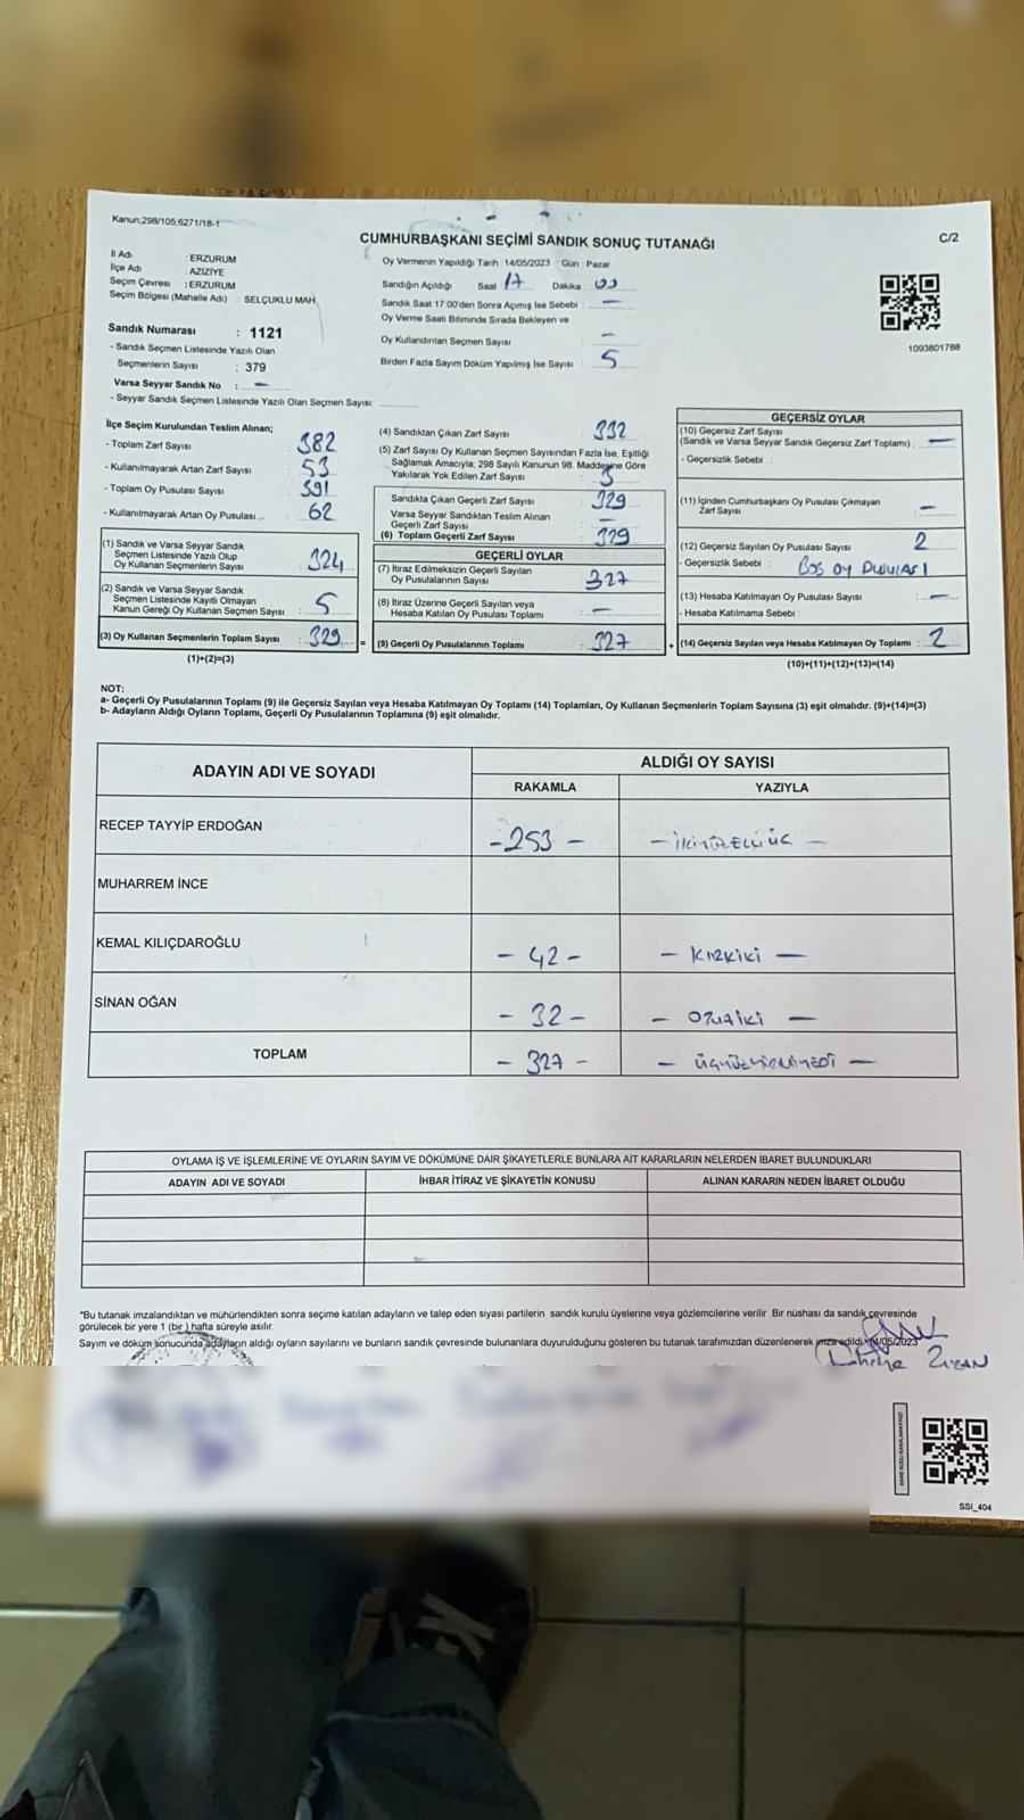 Kanun:298/105,6271/18-1
C/2
CUMHURBAŞKANI SEÇİMİ SANDIK SONUÇ TUTANAĞI
İl Adı : ERZURUM
İlçe Adı : AZİZİYE
Seçim Çevresi : ERZURUM
Seçim Bölgesi (Mahalle Adı) : SELÇUKLU MAH.
Sandık Numarası : 1121
- Sandık Seçmen Listesinde Yazılı Olan
Seçmenlerin Sayısı : 379
Varsa Seyyar Sandık No : —
- Seyyar Sandık Seçmen Listesinde Yazılı Olan Seçmen Sayısı:
Oy Vermenin Yapıldığı Tarih :14/05/2023 - Gün : Pazar
Sandığın Açıldığı Saat 17 Dakika 00
Sandık Saat 17:00'den Sonra Açılmış İse Sebebi : —
Oy Verme Saati Bitiminde Sırada Bekleyen ve
Oy Kullandırılan Seçmen Sayısı : —
Birden Fazla Sayım Döküm Yapılmış İse Sayısı : 5
1093801788
İlçe Seçim Kurulundan Teslim Alınan;
- Toplam Zarf Sayısı : 382
- Kullanılmayarak Artan Zarf Sayısı : 53
- Toplam Oy Pusulası Sayısı : 391
- Kullanılmayarak Artan Oy Pusulası... : 62
(1) Sandık ve Varsa Seyyar Sandık
Seçmen Listesinde Yazılı Olup
Oy Kullanan Seçmenlerin Sayısı : 324
(2) Sandık ve Varsa Seyyar Sandık
Seçmen Listesinde Kayıtlı Olmayan
Kanun Gereği Oy Kullanan Seçmen Sayısı : 5
(3) Oy Kullanan Seçmenlerin Toplam Sayısı : 329 =
(1)+(2)=(3)
(4) Sandıktan Çıkan Zarf Sayısı : 332
(5) Zarf Sayısı Oy Kullanan Seçmen Sayısından Fazla İse, Eşitliği
Sağlamak Amacıyla; 298 Sayılı Kanunun 98. Maddesine Göre
Yakılarak Yok Edilen Zarf Sayısı : 3
Sandıkta Çıkan Geçerli Zarf Sayısı : 329
Varsa Seyyar Sandıktan Teslim Alınan
Geçerli Zarf Sayısı : —
(6) Toplam Geçerli Zarf Sayısı : 329
GEÇERLİ OYLAR
(7) İtiraz Edilmeksizin Geçerli Sayılan
Oy Pusulalarının Sayısı : 327
(8) İtiraz Üzerine Geçerli Sayılan veya
Hesaba Katılan Oy Pusulası Toplamı : —
(9) Geçerli Oy Pusulalarının Toplamı : 327 +
GEÇERSİZ OYLAR
(10) Geçersiz Zarf Sayısı
(Sandık ve Varsa Seyyar Sandık Geçersiz Zarf Toplamı) : —
- Geçersizlik Sebebi :
(11) İçinden Cumhurbaşkanı Oy Pusulası Çıkmayan
Zarf Sayısı : —
(12) Geçersiz Sayılan Oy Pusulası Sayısı : 2
- Geçersizlik Sebebi : BOŞ OY PUSULASI
(13) Hesaba Katılmayan Oy Pusulası Sayısı : —
- Hesaba Katılmama Sebebi :
(14) Geçersiz Sayılan veya Hesaba Katılmayan Oy Toplamı : 2
(10)+(11)+(12)+(13)=(14)
NOT:
a- Geçerli Oy Pusulalarının Toplamı (9) ile Geçersiz Sayılan veya Hesaba Katılmayan Oy Toplamı (14) Toplamları, Oy Kullanan Seçmenlerin Toplam Sayısına (3) eşit olmalıdır. (9)+(14)=(3)
b- Adayların Aldığı Oyların Toplamı, Geçerli Oy Pusulalarının Toplamına (9) eşit olmalıdır.
ADAYIN ADI VE SOYADI
ALDIĞI OY SAYISI
RAKAMLA YAZIYLA
RECEP TAYYİP ERDOĞAN -253- -İKİYÜZELLİÜÇ-
MUHARREM İNCE
KEMAL KILIÇDAROĞLU -42- -KIRKİKİ-
SİNAN OĞAN -32- -OTUZİKİ-
TOPLAM -327- -ÜÇYÜZYİRMİYEDİ-
OYLAMA İŞ VE İŞLEMLERİNE VE OYLARIN SAYIM VE DÖKÜMÜNE DAİR ŞİKAYETLERLE BUNLARA AİT KARARLARIN NELERDEN İBARET BULUNDUKLARI
ADAYIN ADI VE SOYADI İHBAR İTİRAZ VE ŞİKAYETİN KONUSU ALINAN KARARIN NEDEN İBARET OLDUĞU
"Bu tutanak imzalandıktan ve mühürlendikten sonra seçime katılan adayların ve talep eden siyasi partilerin sandık kurulu üyelerine veya gözlemcilerine verilir. Bir nüshası da sandık çevresinde
görülecek bir yere 1 (bir) hafta süreyle asılır.
Sayım ve döküm sonucunda adayların aldığı oyların sayılarını ve bunların sandık çevresinde bulunanlara duyurulduğunu gösteren bu tutanak tarafımızdan düzenlenerek imza edildi. 14/05/2023
SSI_404